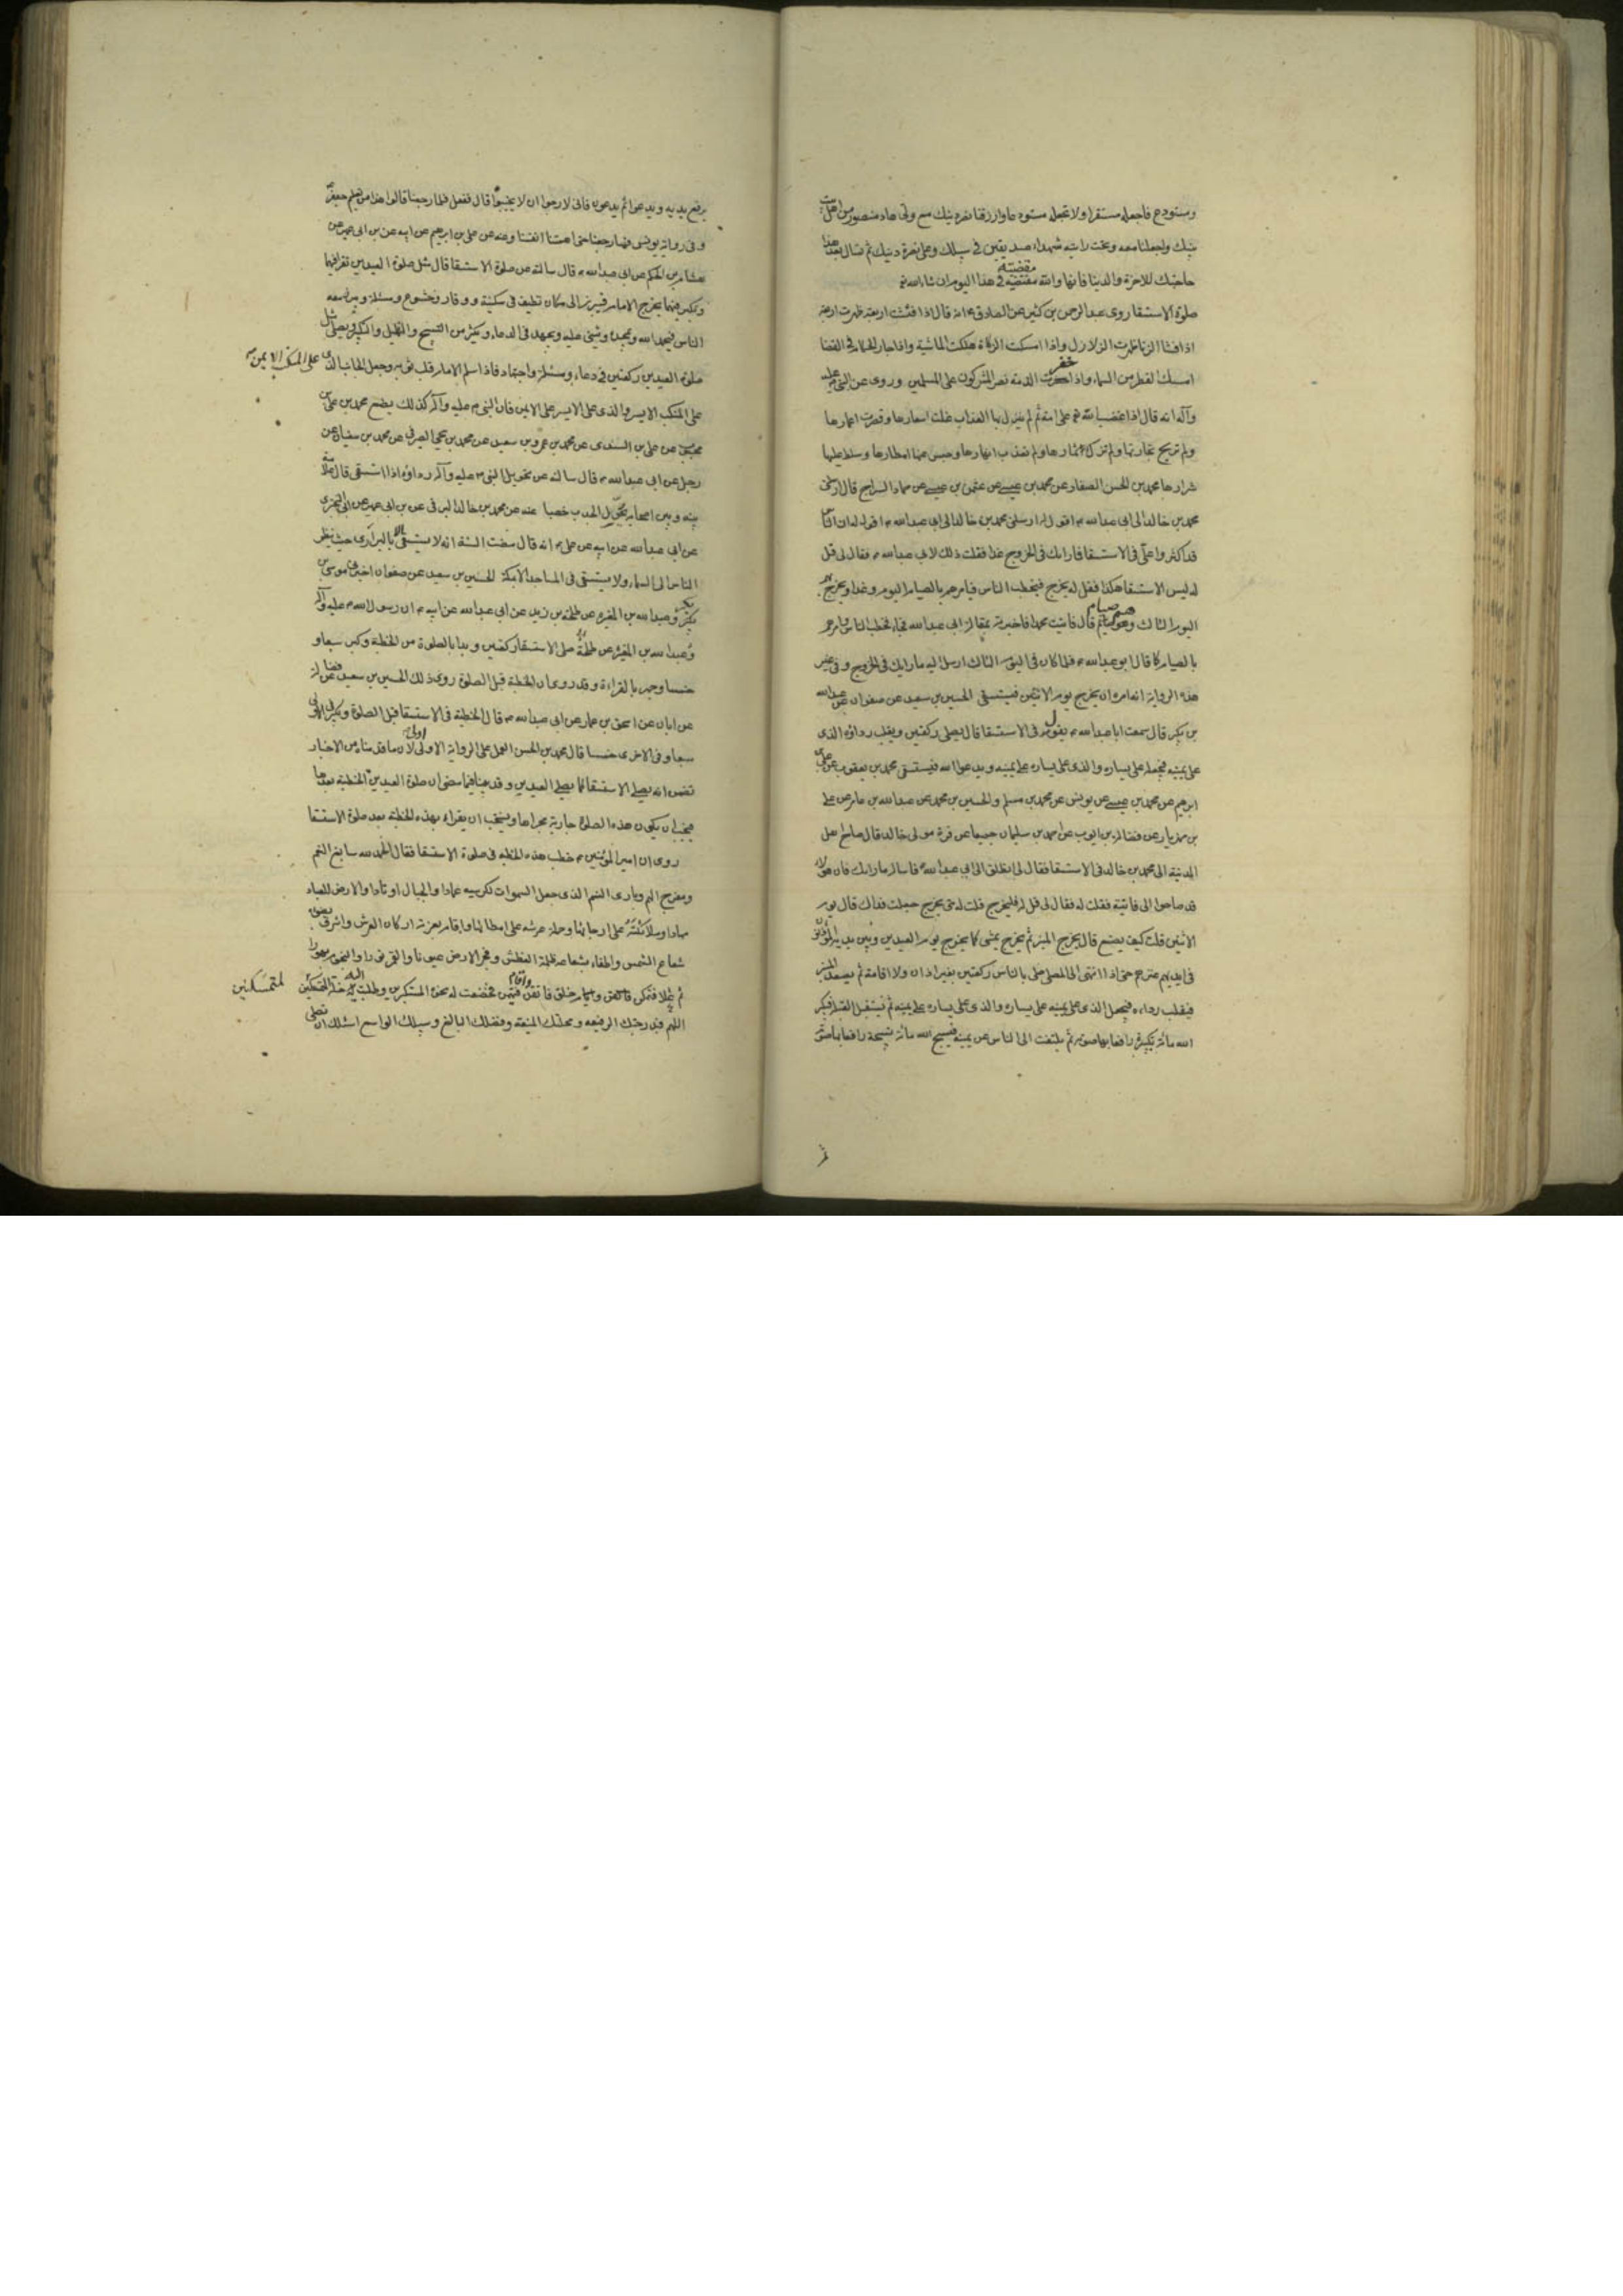 ومستودع فاجعله مستقرا ولا تجعله مستودعا وارزقنا نصر دينك مع ولي هاد منصور من اهل بيت
نبيك واجعلنا معه وتحت رايته شهداء صديقين في سبيلك وعلى نصرة دينك ثم تسال بعد هذا
حاجتك للاخرة والدنيا فانها والله مقضية في هذا اليوم ان شاء الله تع
صلوة الاستسقا روى عبد الرحمن بن كثير عن الصادق ع انه قال اذا فشت اربعة ظهرت اربعة
اذا فشا الزنا ظهرت الزلازل واذا امسكت الزكاة هلكت الماشية واذا جار الحكام في القضا
امسك القطر من السماء واذا خفرت الذمة نصر المشركون على المسلمين وروى عن النبي ص عليه
وآله انه قال اذا غضب الله تع على امة ثم لم ينزل بها العذاب غلت اسعارها وقصرت اعمارها
ولم تربح تجارتها ولم تزك ثمارها ولم تعذب انهارها وحبس عنها امطارها وسلط عليها
شرارها محمد بن الحسن الصفار عن محمد بن عيسى عن عثمن بن عيسى عن حماد السراج قال ارسلني
محمد بن خالد الى ابي عبد الله ع اقول له ارسلني محمد بن خالد الى ابي عبد الله ع اقول له ان الناس
قد اكثروا على في الاستسقا فما رايك في الخروج غدا فقلت ذلك لابي عبد الله ع فقال لي قل
له ليس الاستسقا هكذا فقل له يخرج فيخطب الناس فيامرهم بالصيام اليوم وغدا ويخرج بهم
اليوم الثالث وهم صيام قال فاتيت محمدا فاخبرته بمقالة ابي عبد الله فجاء فخطب الناس وامرهم
بالصيام كما قال ابو عبد الله ع فلما كان في اليوم الثالث ارسل اليه ما رايك في الخروج وفي غير
هذه الرواية انه امره ان يخرج يوم الاثنين فيستسقى الحسين بن سعيد عن صفوان عن عبد الله
بن بكر قال سمعت ابا عبد الله ع يقول في الاستسقا قال يصلى ركعتين ويقلب رداؤه الذى
على يمينه فيجعله على يساره والذى على يساره على يمينه ويدعو الله فيستسقى محمد بن يعقوب عن على بن
ابرهيم عن محمد بن عيسى عن يونس عن محمد بن مسلم والحسين بن محمد عن عبد الله بن عامر عن على
بن مهزيار عن فضالة بن ايوب عن احمد بن سليمان جميعا عن مرة مولى خالد قال صاح اهل
المدينة الى محمد بن خالد في الاستسقا فقال لي انطلق الى ابي عبد الله ع فاساله ما رايك فان هولاء
قد صاحوا الى فاتيته فقلت له فقال لي قل له فليخرج قلت له متى يخرج جعلت فداك قال يوم
الاثنين قلت كيف يصنع قال يخرج المنبر ثم يخرج يمشى كما يخرج يوم العيدين وبين يديه المؤذنون
في ايديهم عنزهم حتى اذا انتهى الى المصلى صلى بالناس ركعتين بغير اذان ولا اقامة ثم يصعد المنبر
فيقلب رداءه فيجعل الذى على يمينه على يساره والذى على يساره على يمينه ثم يستقبل القبلة فيكبر
الله مائة تكبيرة رافعا بها صوته ثم يلتفت الى الناس عن يمينه فيسبح الله مائة تسبيحة رافعا بها صوته
ثم
يرفع يديه ويدعو ثم يدعون فانى لارجوا ان لا يخيبوا قال ففعل فلما رجعنا قالوا هذا من تعليم جعفر
وفي رواية يونس فما رجعنا حتى اهمتنا انفسنا وعنه عن على بن ابرهيم عن ابيه عن بن ابى عمير عن
هشام بن الحكم عن ابي عبد الله ع قال سالته عن صلوة الاستسقا قال مثل صلوة العيدين تقرا فيها
وتكبر فيها يخرج الامام فيبرز الى مكان نظيف في سكينة ووقار وخشوع ومسئلة ويبرز معه
الناس فيحمد الله ويمجده ويثنى عليه ويجتهد في الدعاء ويكثر من التسبيح والتهليل والتكبير ويصلى مثل
صلوة العيدين ركعتين في دعاء ومسئلة واجتهاد فاذا سلم الامام قلب ثوبه وجعل الجانب الذى على المنكب الايمن
على المنكب الايسر والذى على الايسر على الايمن فان النبي ص عليه وآله كذلك يصنع محمد بن على بن
محبوب عن على بن السندى عن محمد بن عمرو بن سعيد عن محمد بن يحيى الصيرفى عن محمد بن سفيان عن
رجل عن ابي عبد الله ع قال سالته عن تحويل النبي ص عليه وآله رداؤه اذا استسقى قال علامة
بينه وبين اصحابه يحول الجدب خصبا عنه عن محمد بن خالد البرقى عن بن ابى عمير عن ابى البخترى
عن ابي عبد الله عن ابيه عن على ع انه قال مضت السنة انه لا يستسقى الا بالبرارى حيث ينظر
الناس الى السماء ولا يستسقى في المساجد الا بمكة الحسين بن سعيد عن صفوان اخبرنى موسى بن
بكر وعبد الله بن المغيرة عن طلحة بن زيد عن ابي عبد الله عن ابيه ع ان رسول الله ص عليه وآله
وعبد الله بن المغيرة عن طلحة صلى الاستسقا ركعتين وبدا بالصلوة من الخطبة وكبر سبعا و
خمسا وجهر بالقراءة وقد روى ان الخطبة قبل الصلوة روى ذلك الحسين بن سعيد عن فضالة
عن ابان عن اسحق بن عمار عن ابي عبد الله ع قال الخطبة في الاستسقا قبل الصلوة ويكبر في الاولى
سبعا وفي الاخرى خمسا قال محمد بن الحسن العمل على الرواية الاولى اولى لان ما قدمناه من الاخبار
تضمن انه يصلى الاستسقا كما يصلى العيدين وقد بينا فيما مضى ان صلوة العيدين الخطبة بعدها
فيجب ان يكون هذه الصلوة جارية مجراها ويستحب ان يقراء بهذه الخطبة بعد صلوة الاستسقا
روى ان امير المؤمنين ع خطب هذه الخطبة في صلوة الاستسقا فقال الحمد لله سابغ النعم
ومفرج الهم وبارى النسم الذى جعل السموات لكرسيه عمادا والجبال اوتادا والارض للعباد
مهادا وملائكته على ارجائها وحملة عرشه على امطائها واقام بعزته اركان العرش واشرق بضوئه
شعاع الشمس واطفاء بشعاعه ظلمة الغطش وفجر الارض عيونا والقمر نورا والنجوم بهورا
ثم علا فتمكن وخلق فاتقن واقام فتهيمن فخضعت له نخوة المستكبر وطلبت اليه خلة المتمسكين لمتمسكنين
اللهم فبدرجتك الرفيعه ومحلتك المنيعة وفضلك البالغ وسبيلك الواسع اسئلك ان تصلى